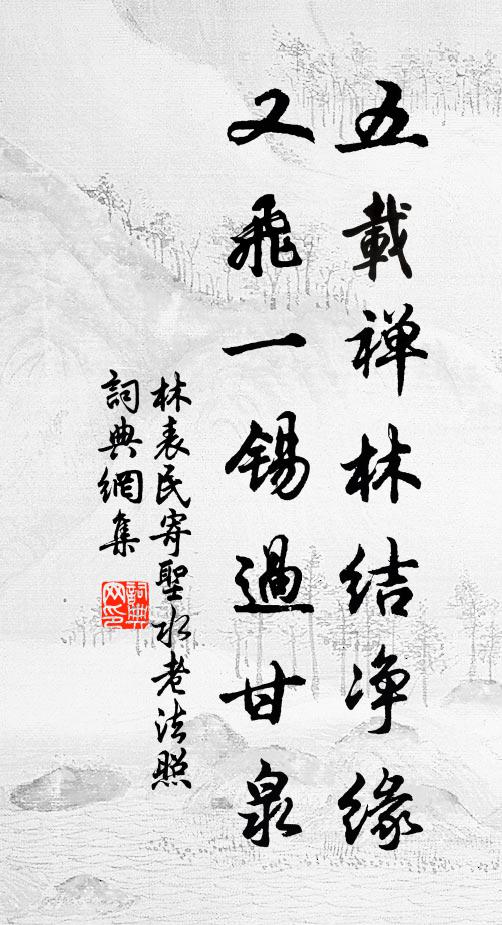 五載禅林結净緣
又飛一錫過甘泉
林表民寄聖水老法照
詞典網集
詞典网印